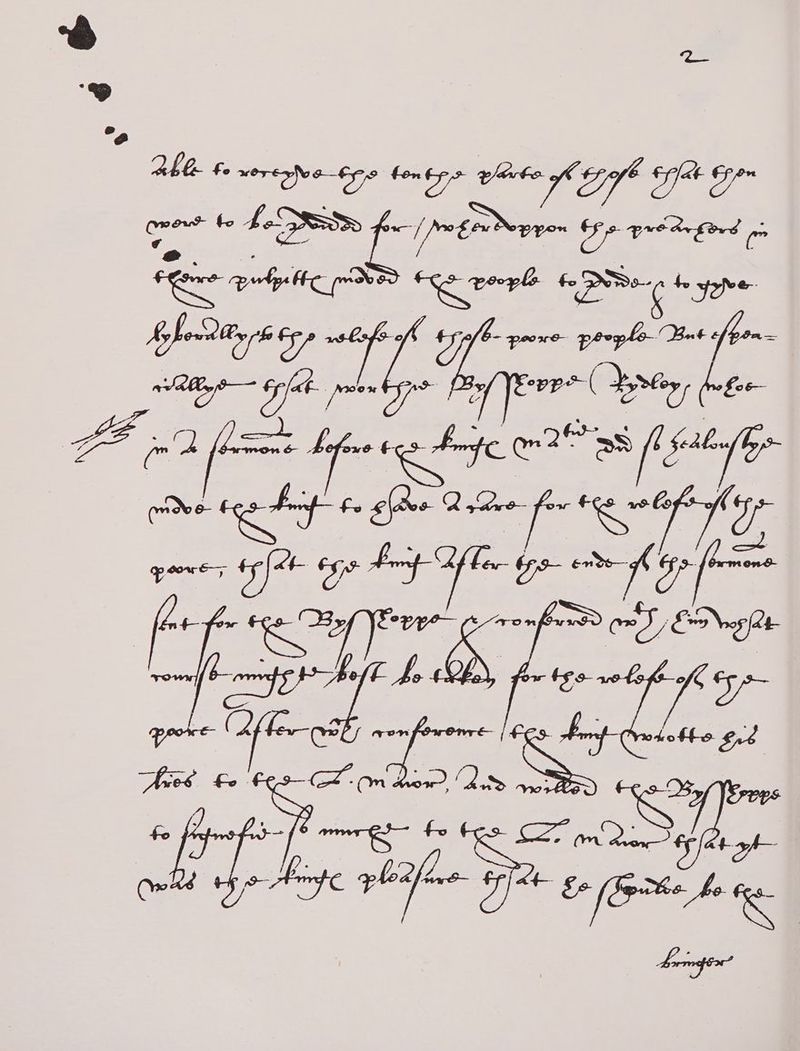 2
Able to receyve the tenthe parte of those that then
were to be p̱vided for / whereuppon the preachers in
theire pulpittℯ moved the people to p̱vide & to gyve
lyberallye to the relefe of those poore people But espea=
ciallye that worthie Bysshoppe (Rydley, whoe
in A sermone before the kingℯ matie did so zealouslye
move the king to have A care for the relefe of the
poore, that the king After the ende of the sermone
sent for the Bysshoppe & conferred wth him what
course might best be taken for the relefe of the
poore After wch conference / the king wrotte his
lres to the L. maior, And willed the Bysshoppe
to signefie so muche to the L. maior that yt
was the kingℯ pleasure that he shoulde be the
bringer